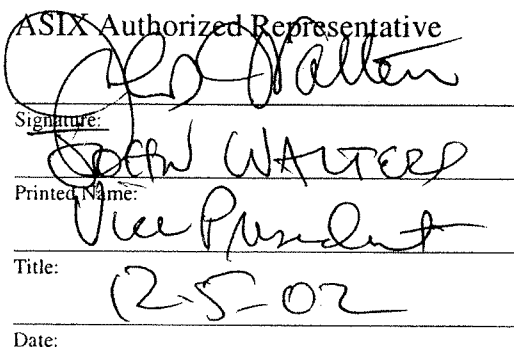 ASIX Authorized Representative
John Walters
Signature:
JOHN WALTERS
Printed Name:
Vice President
Title:
12-5-02
Date: